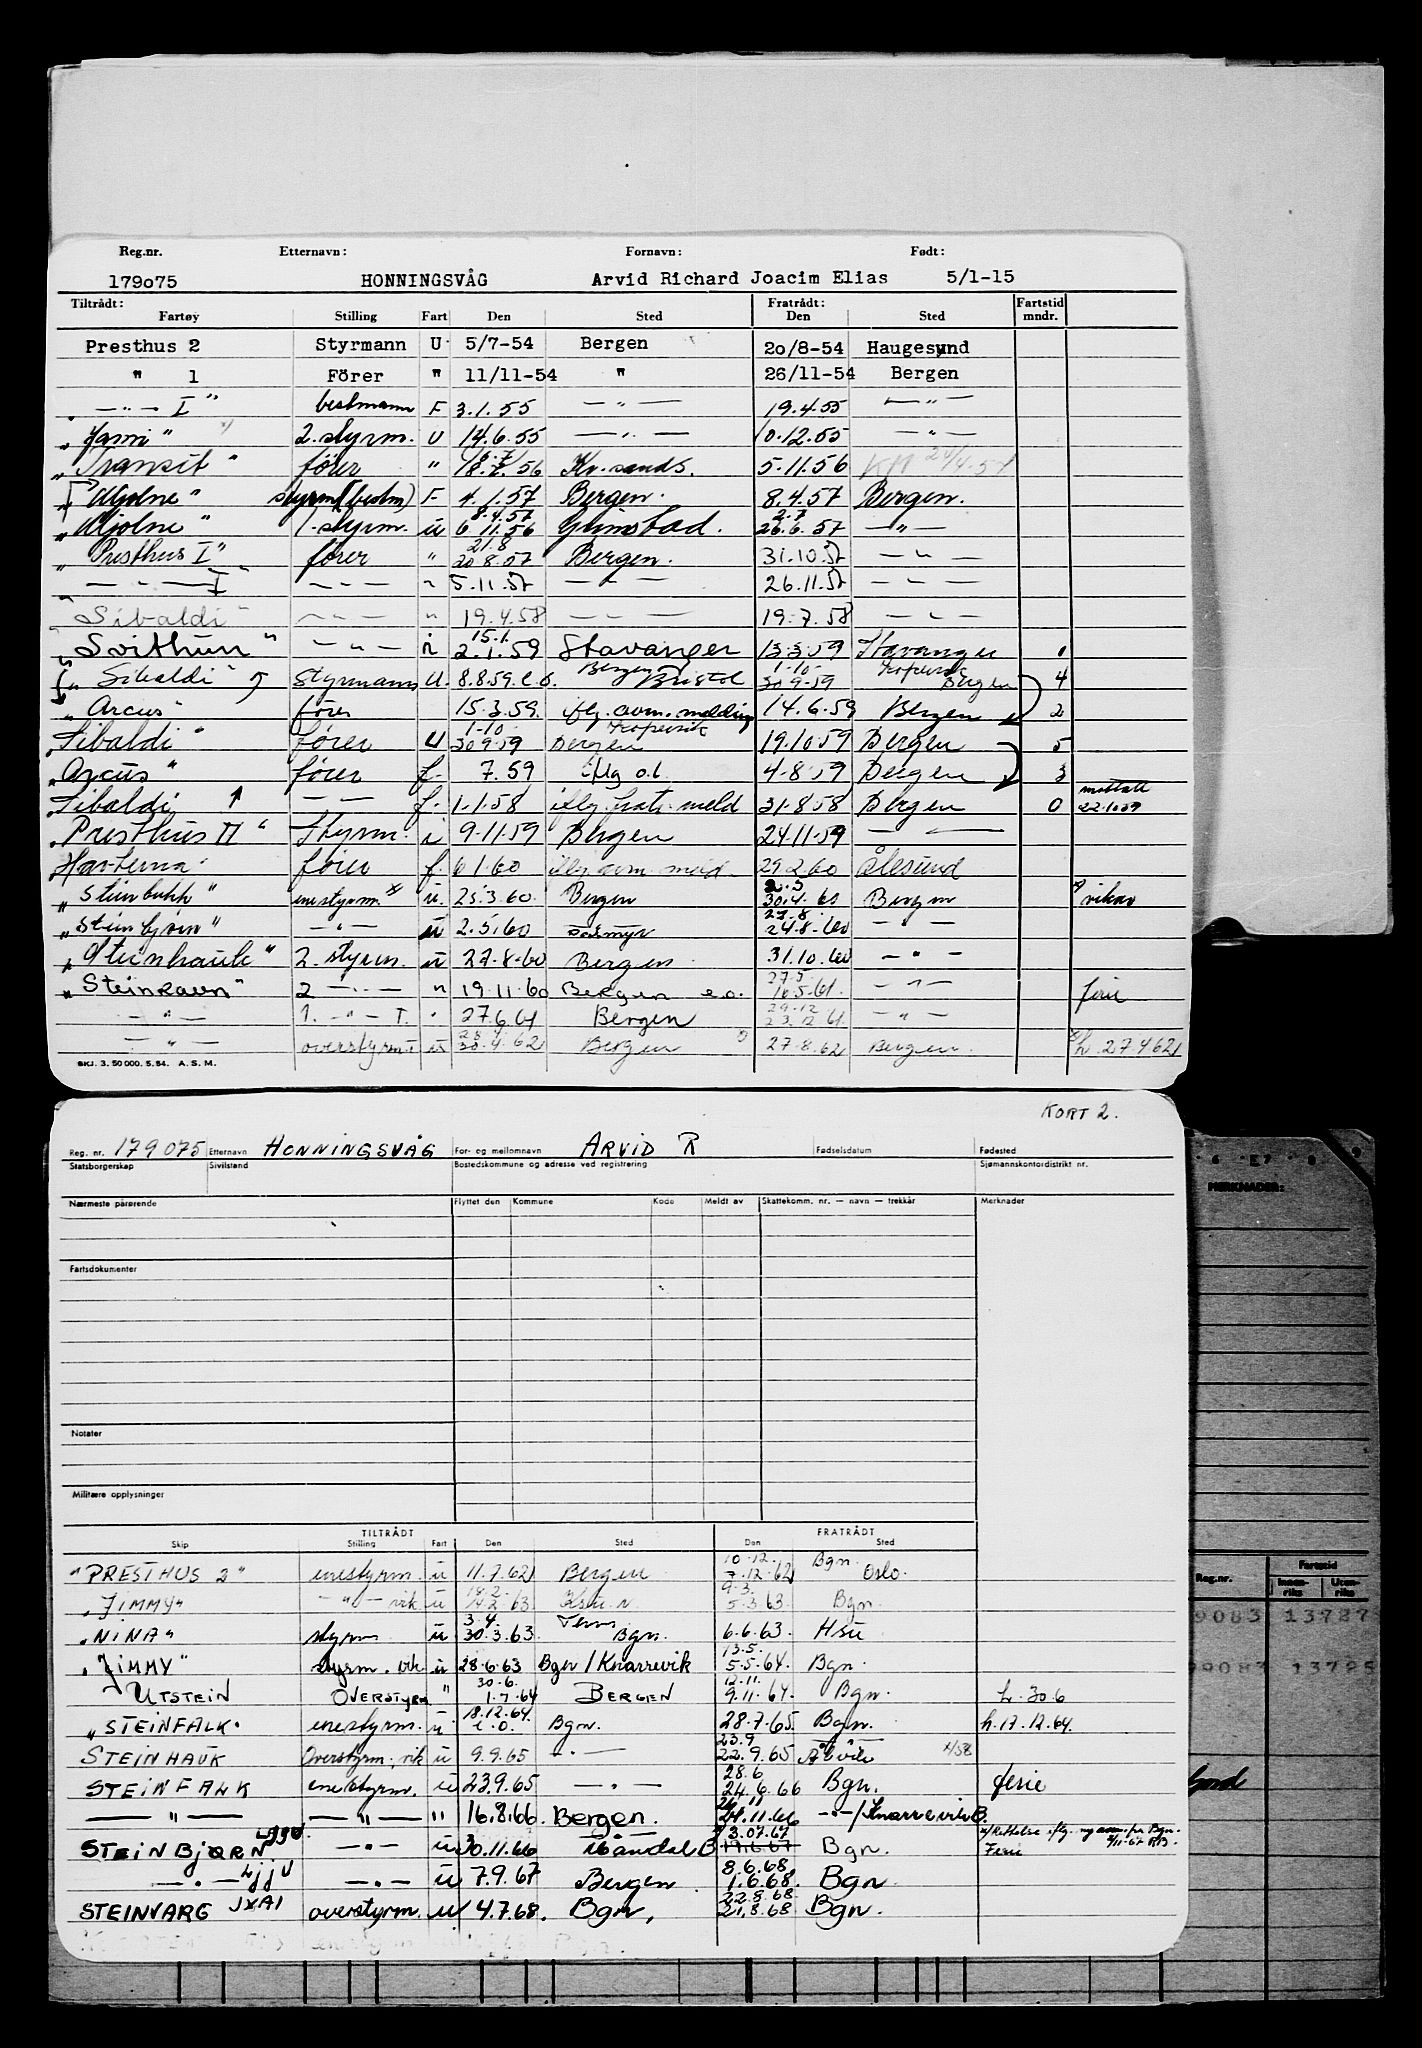 Reg.nr. Etternavn: Fornavn: Født:
179o75 HONNINGSVÅG Arvid Richard Joacim Elias 5/1-15
Tiltrådt: Fratrådt: Fartstid
Fartøy Stilling Fart Den Sted Den Sted mndr.
Presthus 2 Styrmann U 5/7-54 Bergen 2o/8-54 Haugesund
" 1 Förer " 11/11-54 " 26/11-54 Bergen
" — " — I " bestmann F 3.1.55 — " — 19.4.55 — " —
2. styrm. U 14.6.55 — " — 10.12.55 — " —
"Transit" förer " 56 Kr.sands. 5.11.56
"Mjølne" styrm (bestm) F 4.1.57 Bergen. 8.4.57 Bergen.
"Mjolne" 1. styrm. u 8.4.57 6 11.56 Grimstad. 2.7 26.6.57 — " —
"Presthus I" fører " 21.8 20.8.57 Bergen. 31.10.57 — " —
— " — I — " — " 5.11.57 — " — 26.11.57 — " —
"Sibaldi" — " — " 19.4.58 — " — 19.7.58 — " —
"Svithun" — " — i 15.1. 2.1.59 Stavanger 13.3.59 Stavanger 0
"Sibaldi" Styrmann U. 8.8.59. e.o. Bergen Bristol 1-10- 30 9-59 Bergen 4
"Arcus" fører 15.3.59. iflg. avm. melding 14.6.59 Bergen 2
"Sibaldi" fører U 1-10- 30 9 59 Bergen 19.10.59 Bergen 5
"Arcus" fører f. 7.59 iflg o.l. 4-8-59 Bergen 3
"Sibaldi — " — f. 1-1-58 iflg. fratr. meld 31-8-58 Bergen 0 mottatt 22.10.59
"Presthus II" Styrm. i 9-11-59 Bergen 24-11-59 — " —
Havterna fører f. 6 1.60 iflg avm. meld. 29.2.60 Ålesund
"Steinbukk" enestyrm. x) u. 25.3.60. Bergen 2.5 30.4.60 Bergen x) vikar
"Steinbjørn" — " — u 2.5.60 27.8. 24.8.60 — " —
"Steinhauk" 2. styrm. u 27-8-60 Bergen 31.10.60 — " —
"Steinravn" 2 — " — " 19.11.60 Bergen e.o. 27.5. 16.5.61. — " — ferie
— " — 1. — " — T. " 27.6.61 Bergen 29.12 23.12.61. — " —
— " — overstyrm. u 28.4 30.4.62 Bergen 27.8.62 Bergen. h. 27.4 62
SKJ. 3. 50 000. 5.54. A. S. M.
KORT 2.
Reg. nr. 179075 Etternavn HONNINGSVÅG For- og mellomnavn ARVID R Fødselsdatum Fødested
Statsborgerskap Sivilstand Bostedskommune og adresse ved registrering Sjømannskontordistrikt nr.
Nærmeste pårørende Flyttet den Kommune Kode Meldt av Skattekomm. nr. — navn — trekkår Merknader
MERKNADER:
Fartsdokumenter
Notater
Militære opplysninger
TILTRÅDT FRATRÅDT
Skip Stilling Fart Den Sted Den Sted
Reg.nr. Fartstid Innenriks Utenriks
"PRESTHUS 2" enestyrm. u 11.7.62 Bergen 10.12. 7.12.62 Bgn. Oslo.
"JIMMY" — " — vik u 14.2.63 9.3. 5.3.63. Bgn.
9083 13727
"NINA" styrm u 3.4. 30.3.63. Bgn. 6.6.63. Hsu
"JIMMY" styrm. vik u 28.6.63 Bgn / Knarrevik 13.5. 5.5.64. Bgn.
9083 13725
UTSTEIN OVERSTYRM " 30.6. 1.7.64 BERGEN 12.11. 9.11.64. Bgn. h. 30.6
"STEINFALK" enestyrm. u 18.12.64. e.o. Bgn. 28.7.65. Bgn. h. 17.12.64.
STEINHAUK Overstyrm. vik u 9.9.65 — " — 23.9 22.9.65
STEINFALK enestyrm. u 23.9.65 — " — 28.6 24.6.66 Bgn. ferie
— " — — " — " 16.8.66. Bergen. 26.11 24.11.66 — " — / Knarrevik B.
STEINBJØRN LJJU — " — u 30.11.66 Måndal B 3.07.67 19.6.67 Bgn. Ferie
— " — LJJU — " — u 7.9.67 Bergen 8.6.68 1.6.68. Bgn
STEINVARG JXAI overstyrm. u 4.7.68. Bgn, 22.8.68 21.8.68 Bgn.